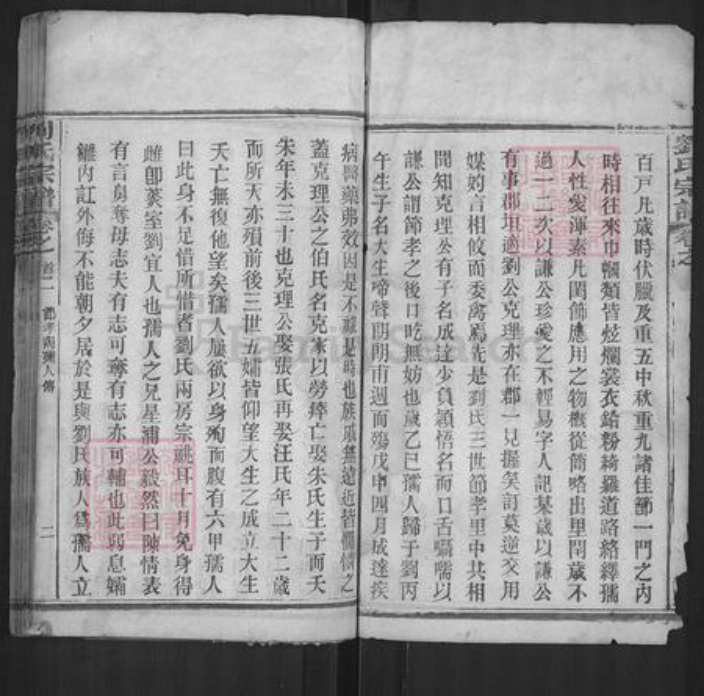 劉氏宗譜卷之
百戶凡歲時伏臘及重五中秋重九諸佳節一門之內
時相往來巾幗類皆炫爛裳衣鉛粉綺羅道路絡繹孺
人性渾素凡閨飾應用之物概從簡略出里閈歲不
過一二次以謙公珍愛之不輕易字人記某歲以謙公
有事郡垣適劉公克理亦在郡一見握矣訂莫逆交用
媒妁言相攸而委禽焉先是劉氏三世節孝里中共相
聞知克理公有子名成達少負穎悟名而口舌囁嚅以
謙公謂節孝之後口吃無妨也歲乙巳孺人歸于劉丙
午生子名大生啼聲甫週而殤戊申四月成達疾
病醫藥弗效因是不祿是時也族戚無遠近皆憐之
蓋克理公之伯氏名克家以勞瘁亡娶朱氏生子而夭
朱年未三十也克理公娶張氏再娶汪氏年二十二歲
而所天亦殞前後三世五孀皆仰望大生之成立大生
夭亡無復他望矣孺人屢欲以身殉而腹有六甲孺人
曰此身不足惜所惜者劉氏兩房宗祧耳十月免身得
雌卽蓂室劉宜人也孺人之兄星浦公毅然曰陳情表
有言舅奪母志夫有志可奪有志亦可輔也此弱息孀
雛內訌外侮不能朝夕居於是與劉氏族人爲孺人立
劉氏宗譜卷之首二
節孝 孺人傳
二
FamilySearch